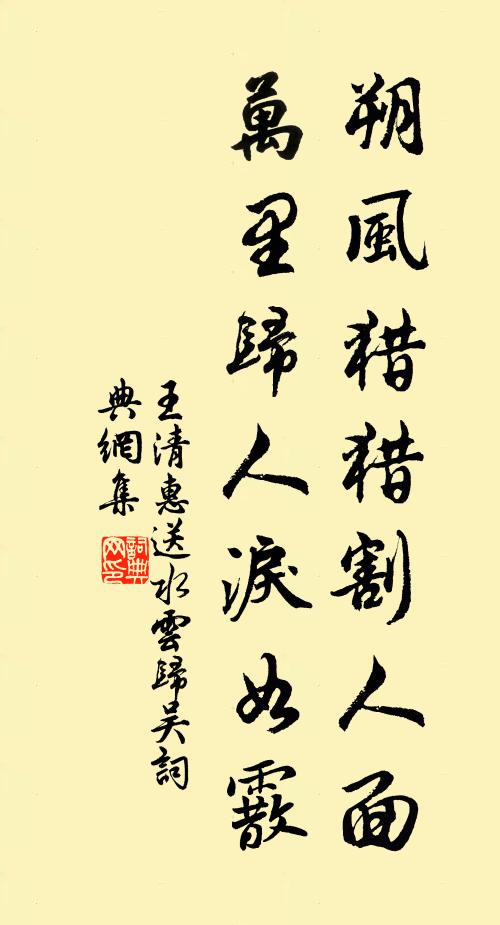 朔風猎猎割人面
萬里歸人淚如霰
王清惠送水雲歸吴詞
典網集
詞典网印